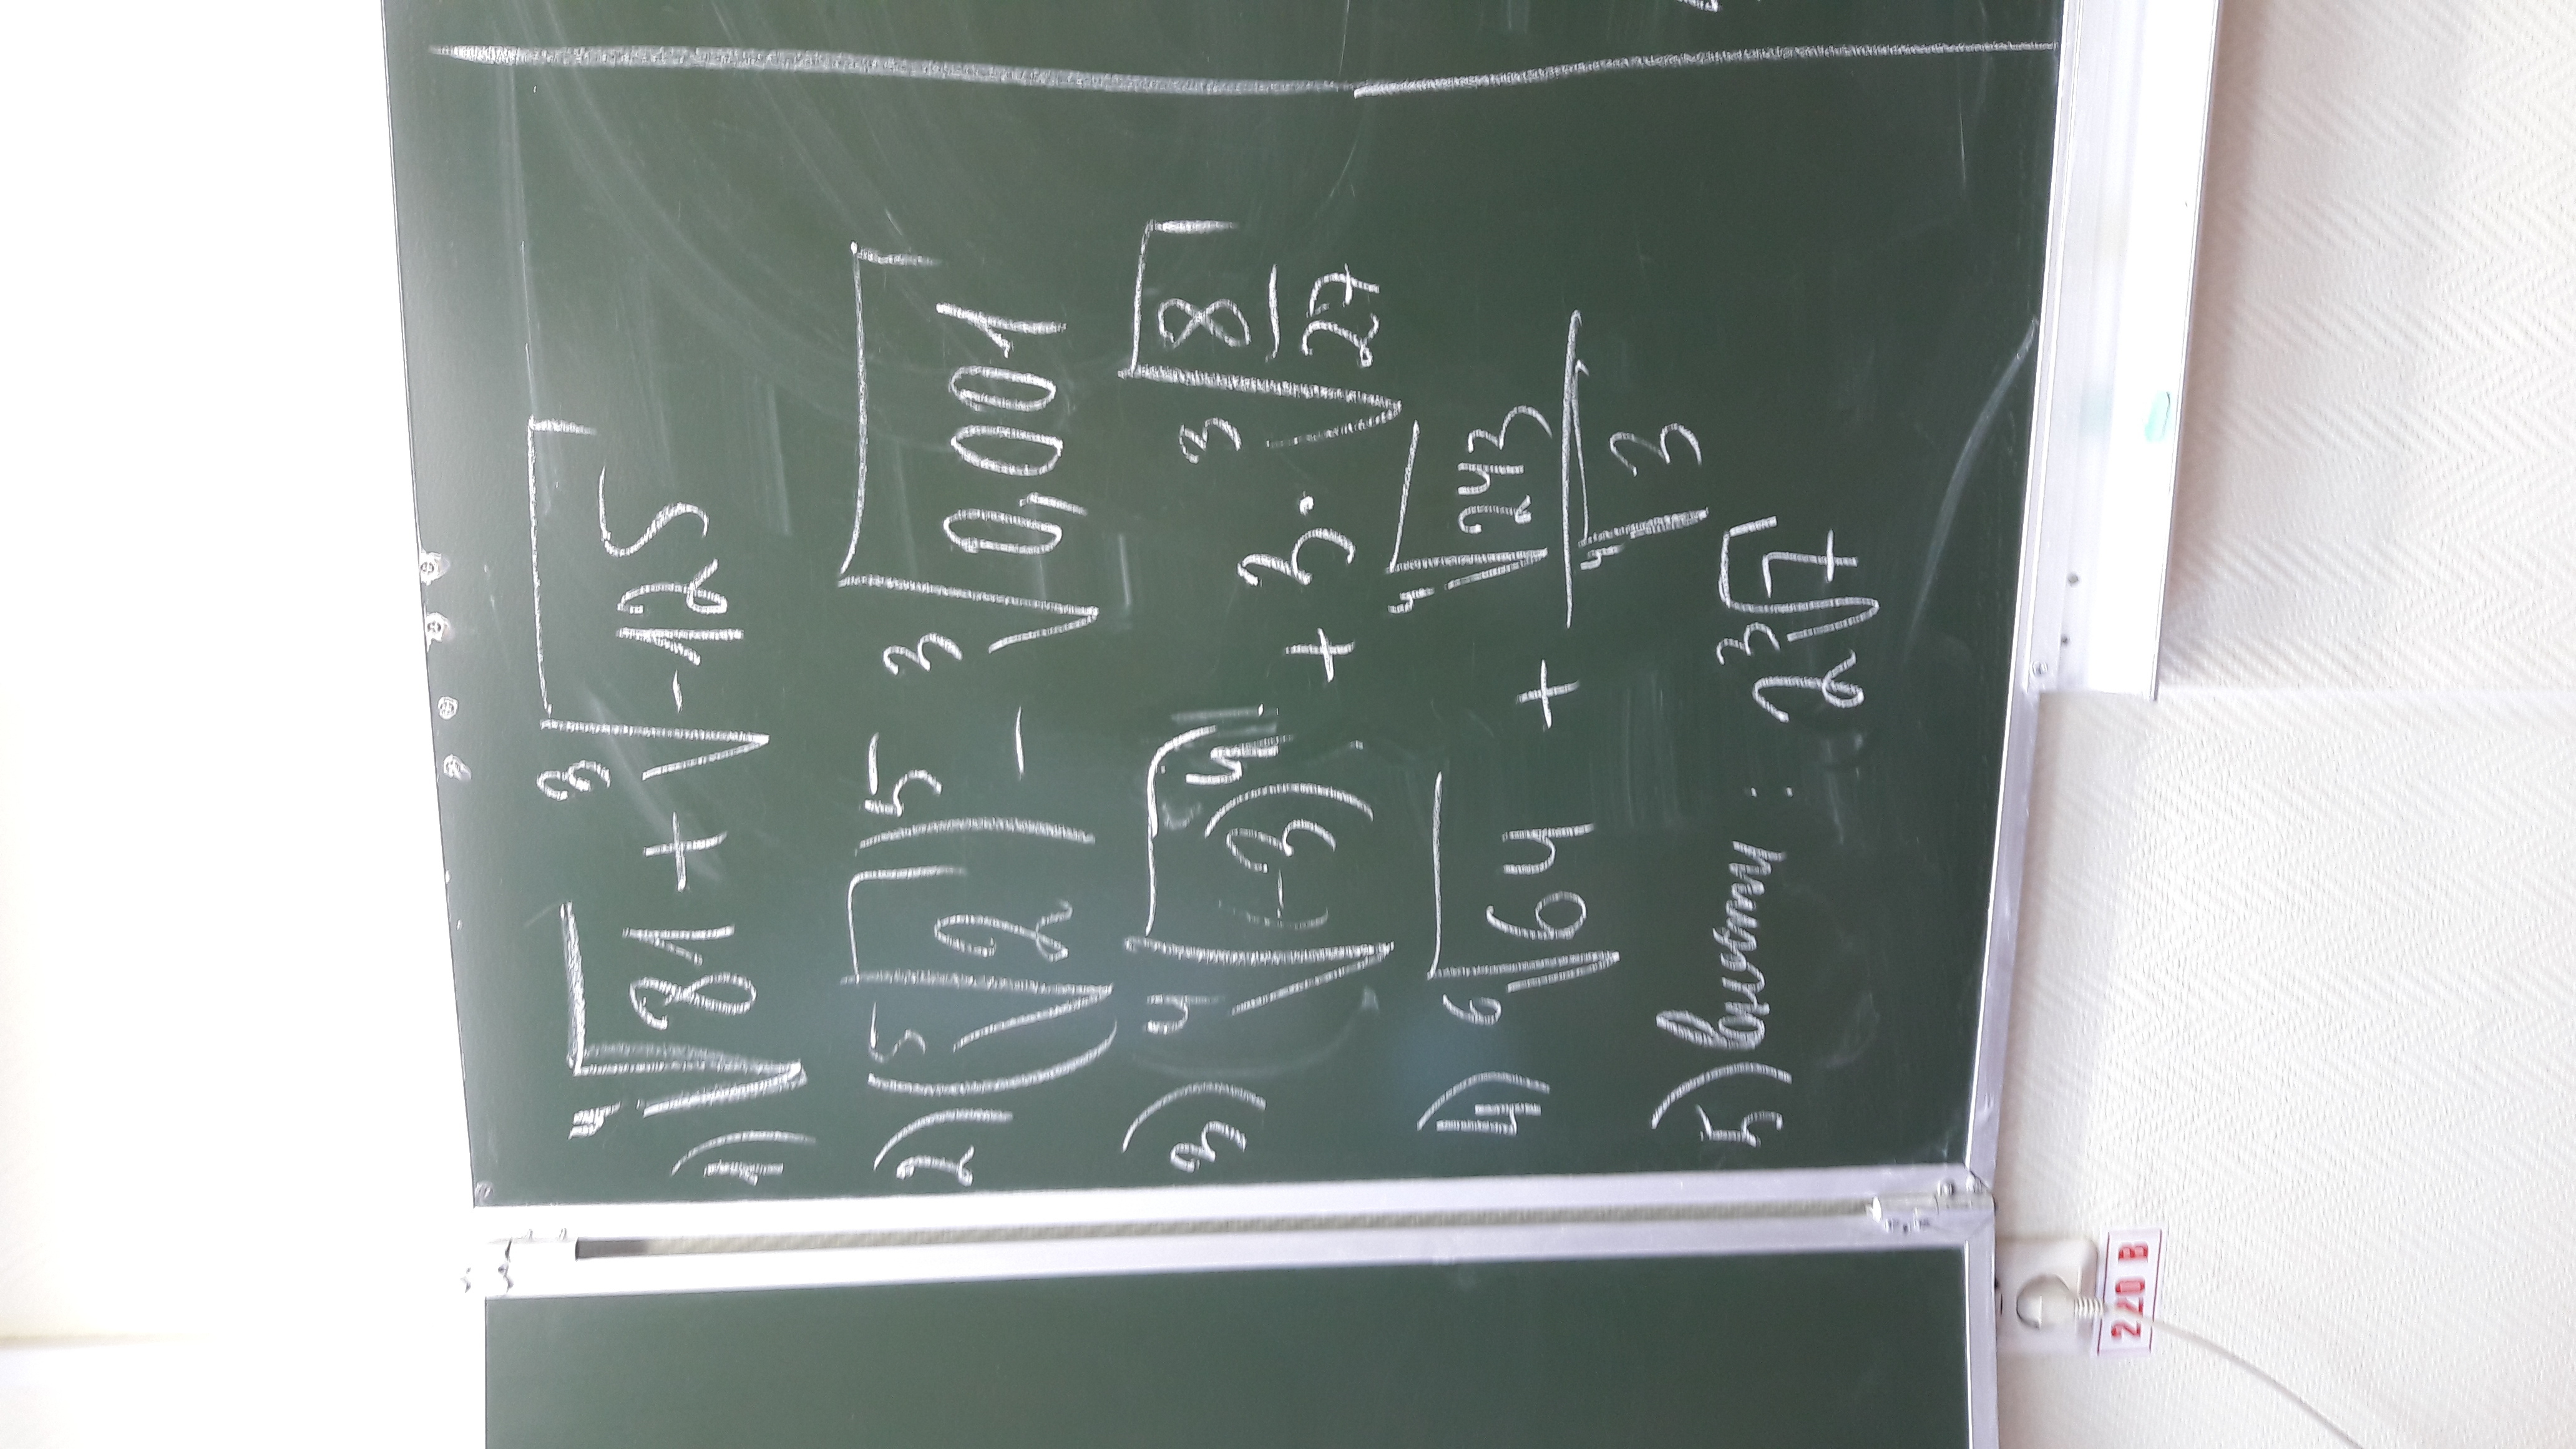 1) ⁴√81 + ³√-125
2) (⁵√2)⁵ - ³√0,001
3) ⁴√(-3)⁴ + 3·³√8/27
4) ⁶√64 + ⁴√243/⁴√3
5) внести: 2³√7
220 В